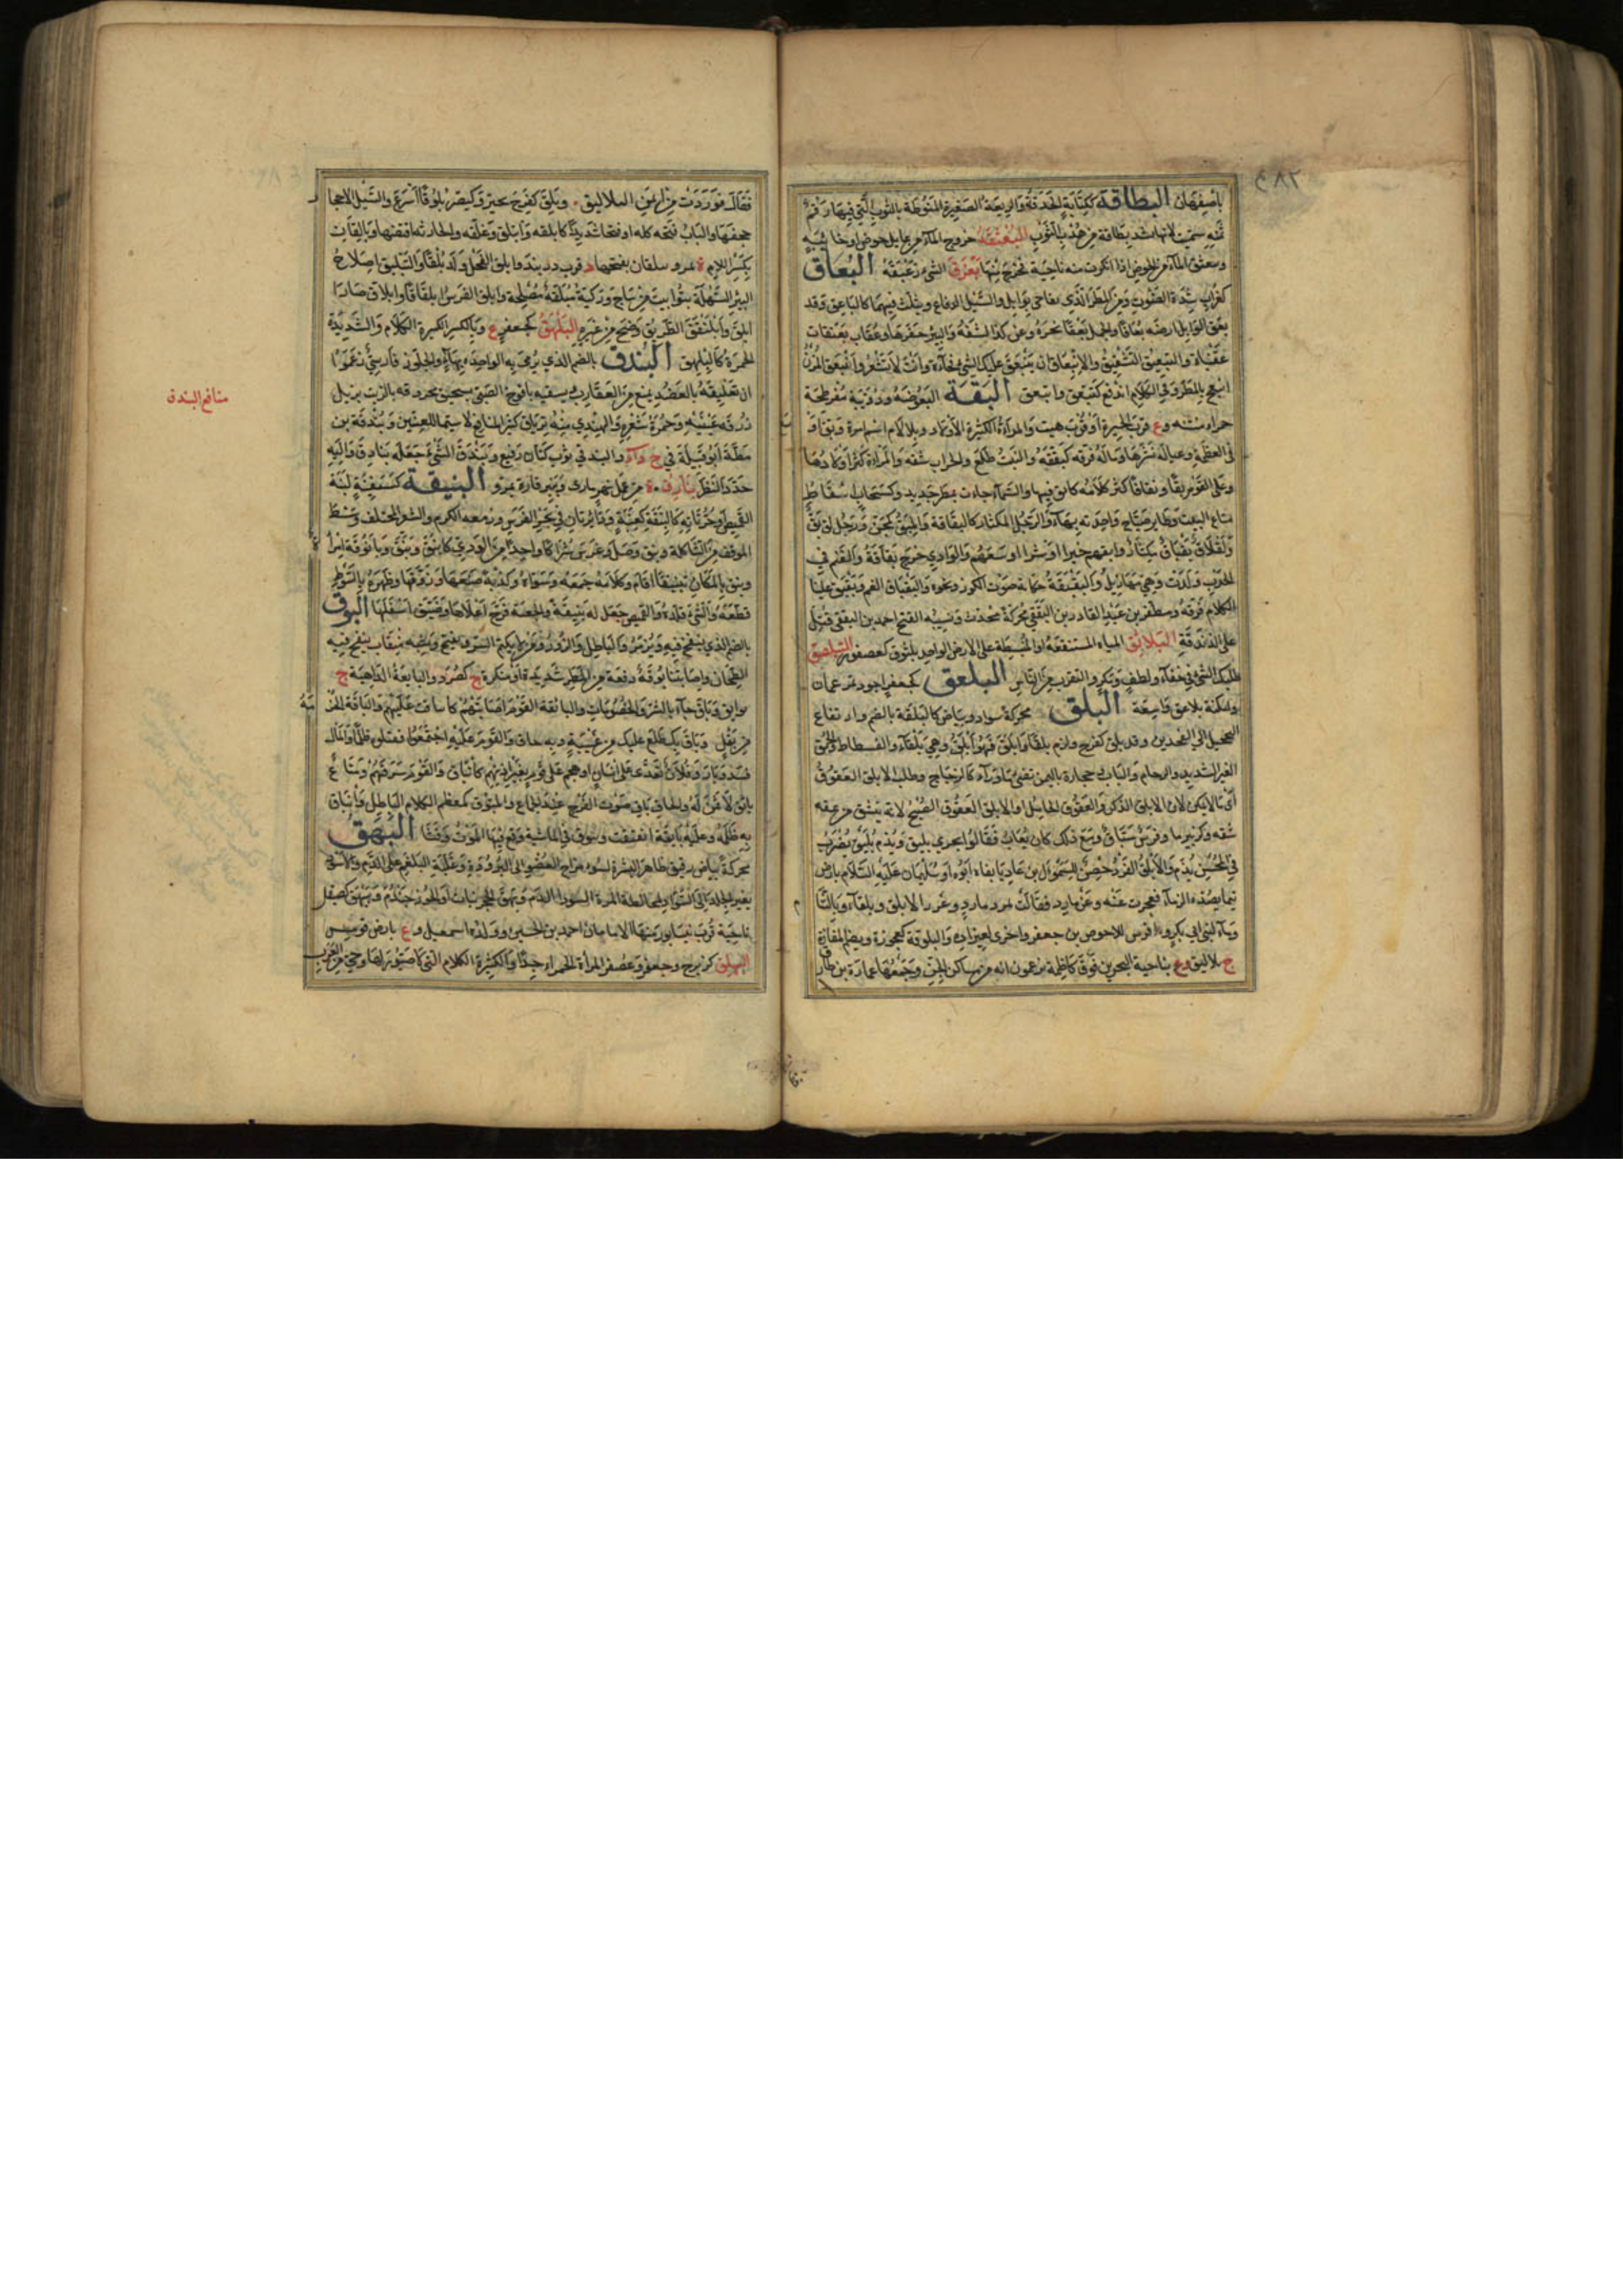 باصفهان البطاقة ككتابة الحدقة والرقعة الصغيرة المنوطة بالثوب التي فيها رقم
ثمنه سميت لانها تشد بطاقة من هدب الثوب البعثقة خروج الماء من غايل حوض او خابية
وتبعثق الماء من الحوض اذا انكسرت منه ناحية فخرج منها بعزق الشيء زعبقه البعاق
كغراب شدة الصوت ومن المطر الذي يفاجئ بوابل والسيل الدفاع ويثلث فيهما كالباعق وقد
بعق الوابل الارض بعاقا والجمل بعقا نحره وعن كذا كشفه والبئر حفرها وعقاب بعنقات
عقنباة والتبعيق التشقيق والانبعاق ان ينبعق عليك الشيء فجاءة وانت لا تشعر وانبعق المزن
انبعج بالمطر وفي الكلام اندفع كتبعق وابتعق البقة البعوضة ودويبة مفرطحة
حمراء منتنة وع قرب الحيرة او قرب هيت والمرأة الكثيرة الاولاد وبلا لام اسم امرأة وبق اوسع
في العطية وعياله نشرها وماله فرقه كبققه والنبت طلع والجراب شقه والمرأة كثر اولادها
وعلى القوم بقا وبقاقا كثر كلامه كابق فيهما والسماء جاءت بمطر جديد وكسحاب سقاط
متاع البيت وطاير صياح واحدته بهاء والرجل المكثار كالبقاقة والمبق كمجن ورجل لق بق
ولقلاق بقباق مكثار وابقهم خيرا او شرا اوسعهم والوادي خرج بقاقه والغنم في
الجدب ولدت وهي مهازيل والبقبقة حكاية صوت الكوز ونحوه والبقباق الفم وبقبق علينا
الكلام فرقه ومظفر بن عبد القادر بن البققي محركة محدث ونسيبه الفتح احمد بن البققي قتل
على الزندقة البلاثق المياه المستنقعة او المنبسطة على الارض الواحد بلثوق كعصفور التبلصق
طلبك الشيء في خفاء ولطف ومكر والتقرب من الناس البلعق كجعفر اجود تمر عمان
وامكنة بلاعق واسعة البلق محركة سواد وبياض كالبلقة بالضم وارتفاع
التحجيل الى الفخذين وقد بلق كفرح وكرم بلقا وابلق فهو ابلق وهي بلقاء والفسطاط والحمق
الغير الشديد والرخام والباب وحجارة باليمن تضيء ما وراءه كالزجاج وطلب الابلق العقوق
اي ما لا يمكن لان الابلق الذكر والعقوق الحامل او الابلق العقوق الصبح لانه ينشق من عقه
شقه وكزبير ما وفرس سباق ومع ذلك كان يعاب فقالوا يجري بليق ويذم بليق يضرب
في المحسن يذم والابلق الفرد حصن السموأل بن عاديا بناه ابوه او سليمان عليه السلام بارض
تيما قصدته الزباء فعجزت عنه وعن مارد فقالت تمرد مارد وعز الابلق وبلقاء وبالشام
وماء لبني ابي بكر وافرس للاحوص بن جعفر واخرى لعيزارة والبلوقة كعجوزة ويضم المفازة
ج بلاليق وع بناحية البحرين فوق كاظمة يزعمون انه من مساكن الجن وجمعها عمارة بن طارق
فقال فوردت من ايمن البلاليق وبلق كفرح تحير وكنصر بلوقا اسرع والسيل الاحجار
جحفها والباب فتحه كله او فتحا شديدا كابلقه وانبلق وبلقه والجارية افتضها وبالقان
بكسر اللام ة بمرو وبيلقان بفتحها د قرب دربند وابلق الفحل ولد بلقا والتبليق اصلاح
البئر السهلة بتوابيت من ساج وركية مبلقة مصلحة وابلق الفرس ابلقاقا وابلاق صار ا
ابلق وابلنقق الطريق وضح من غيره البلهق كجعفر ع وبالكسر الكثيرة الكلام والشديدة
الحمرة كالبلهق البندق بالضم الذي يرمى به الواحدة بهاء والجلوز فارسي زعموا
ان تعليقه بالعضد يمنع من العقارب ويسقيه يافوخ الصبي بسحيق محروقه بالزيت يزيل
زرقة عينيه وحمرة شعره والهندي منه ترياق كثير المنافع لا سيما للعينين وبندقة بن
مظة ابو قبيلة في ج د أ والبندقي ثوب كتان رفيع وبندق الشيء جعله بنادق واليه
حدد النظر بنارق ة من عمل نهر ماري وبنيرقان ة بمرو البنيقة كسفينة لبنة
القميص وجربانه كالبنقة كعنبة ودائرتان في نحر الفرس وزمعة الكرم والشعر المختلف وسط
الموقف من الشاكلة وبنق وصل وغرس شراكا واحدا من الودي كابنق وبنق وبانوقة امرأة
وبنق بالمكان تبنيقا اقام وكلامه جمعه وسواه وكذبة صنعها وزوقها وظهره بالسوط
قطعه والشيء قلده والقميص جعل له بنيقة والجعبة فرج اعلاها وضيق اسفلها البوق
بالضم الذي ينفخ فيه ويزمر والباطل والزور ومن لا يكتم السر ويفتح وشبه منقاب ينفخ فيه
الطحان واصابتنا بوقة دفعة من المطر شديدة او منكرة ج كصرد والبايقة الداهية ج
بوايق وباق جاء بالشر والخصومات والبائقة القوم اصابتهم كانباقت عليهم والباقة الحزمة
من بقل وباق بك طلع عليك من غيبة وبه حاق والقوم عليه اجتمعوا فقتلوه ظلما والمال
فسد وبار وفلان تعدى على انسان او هجم على قوم بغير اذنهم كانباق والقوم سرقهم ومتاع
بائق لا ثمن له والخاق باق صوت الفرج عند الجماع والمبوق كمعظم الكلام الباطل وانباق
به ظلمه وعليه بايقة انفتقت وتبوق في الماشية وقع فيها الموت وفشا البهق
محركة بياض رقيق ظاهر البشرة لسوء مزاج العضو الى البرودة وغلبة البلغم على الدم والاسود
يغير الجلد الى السواد لمخالطة المرة السوداء الدم وبهق الحجر نبات او الجوز جندم وبيهق كصيقل
ناحية قرب نيسابور منها الامامان احمد بن الحسين وولده اسمعيل وع بارض قومس
البهلق كزبرج وجعفر وعصفر المرأة الحمراء جدا والكثيرة الكلام التي لا صيور لها وحي من العرب
منافع البندق